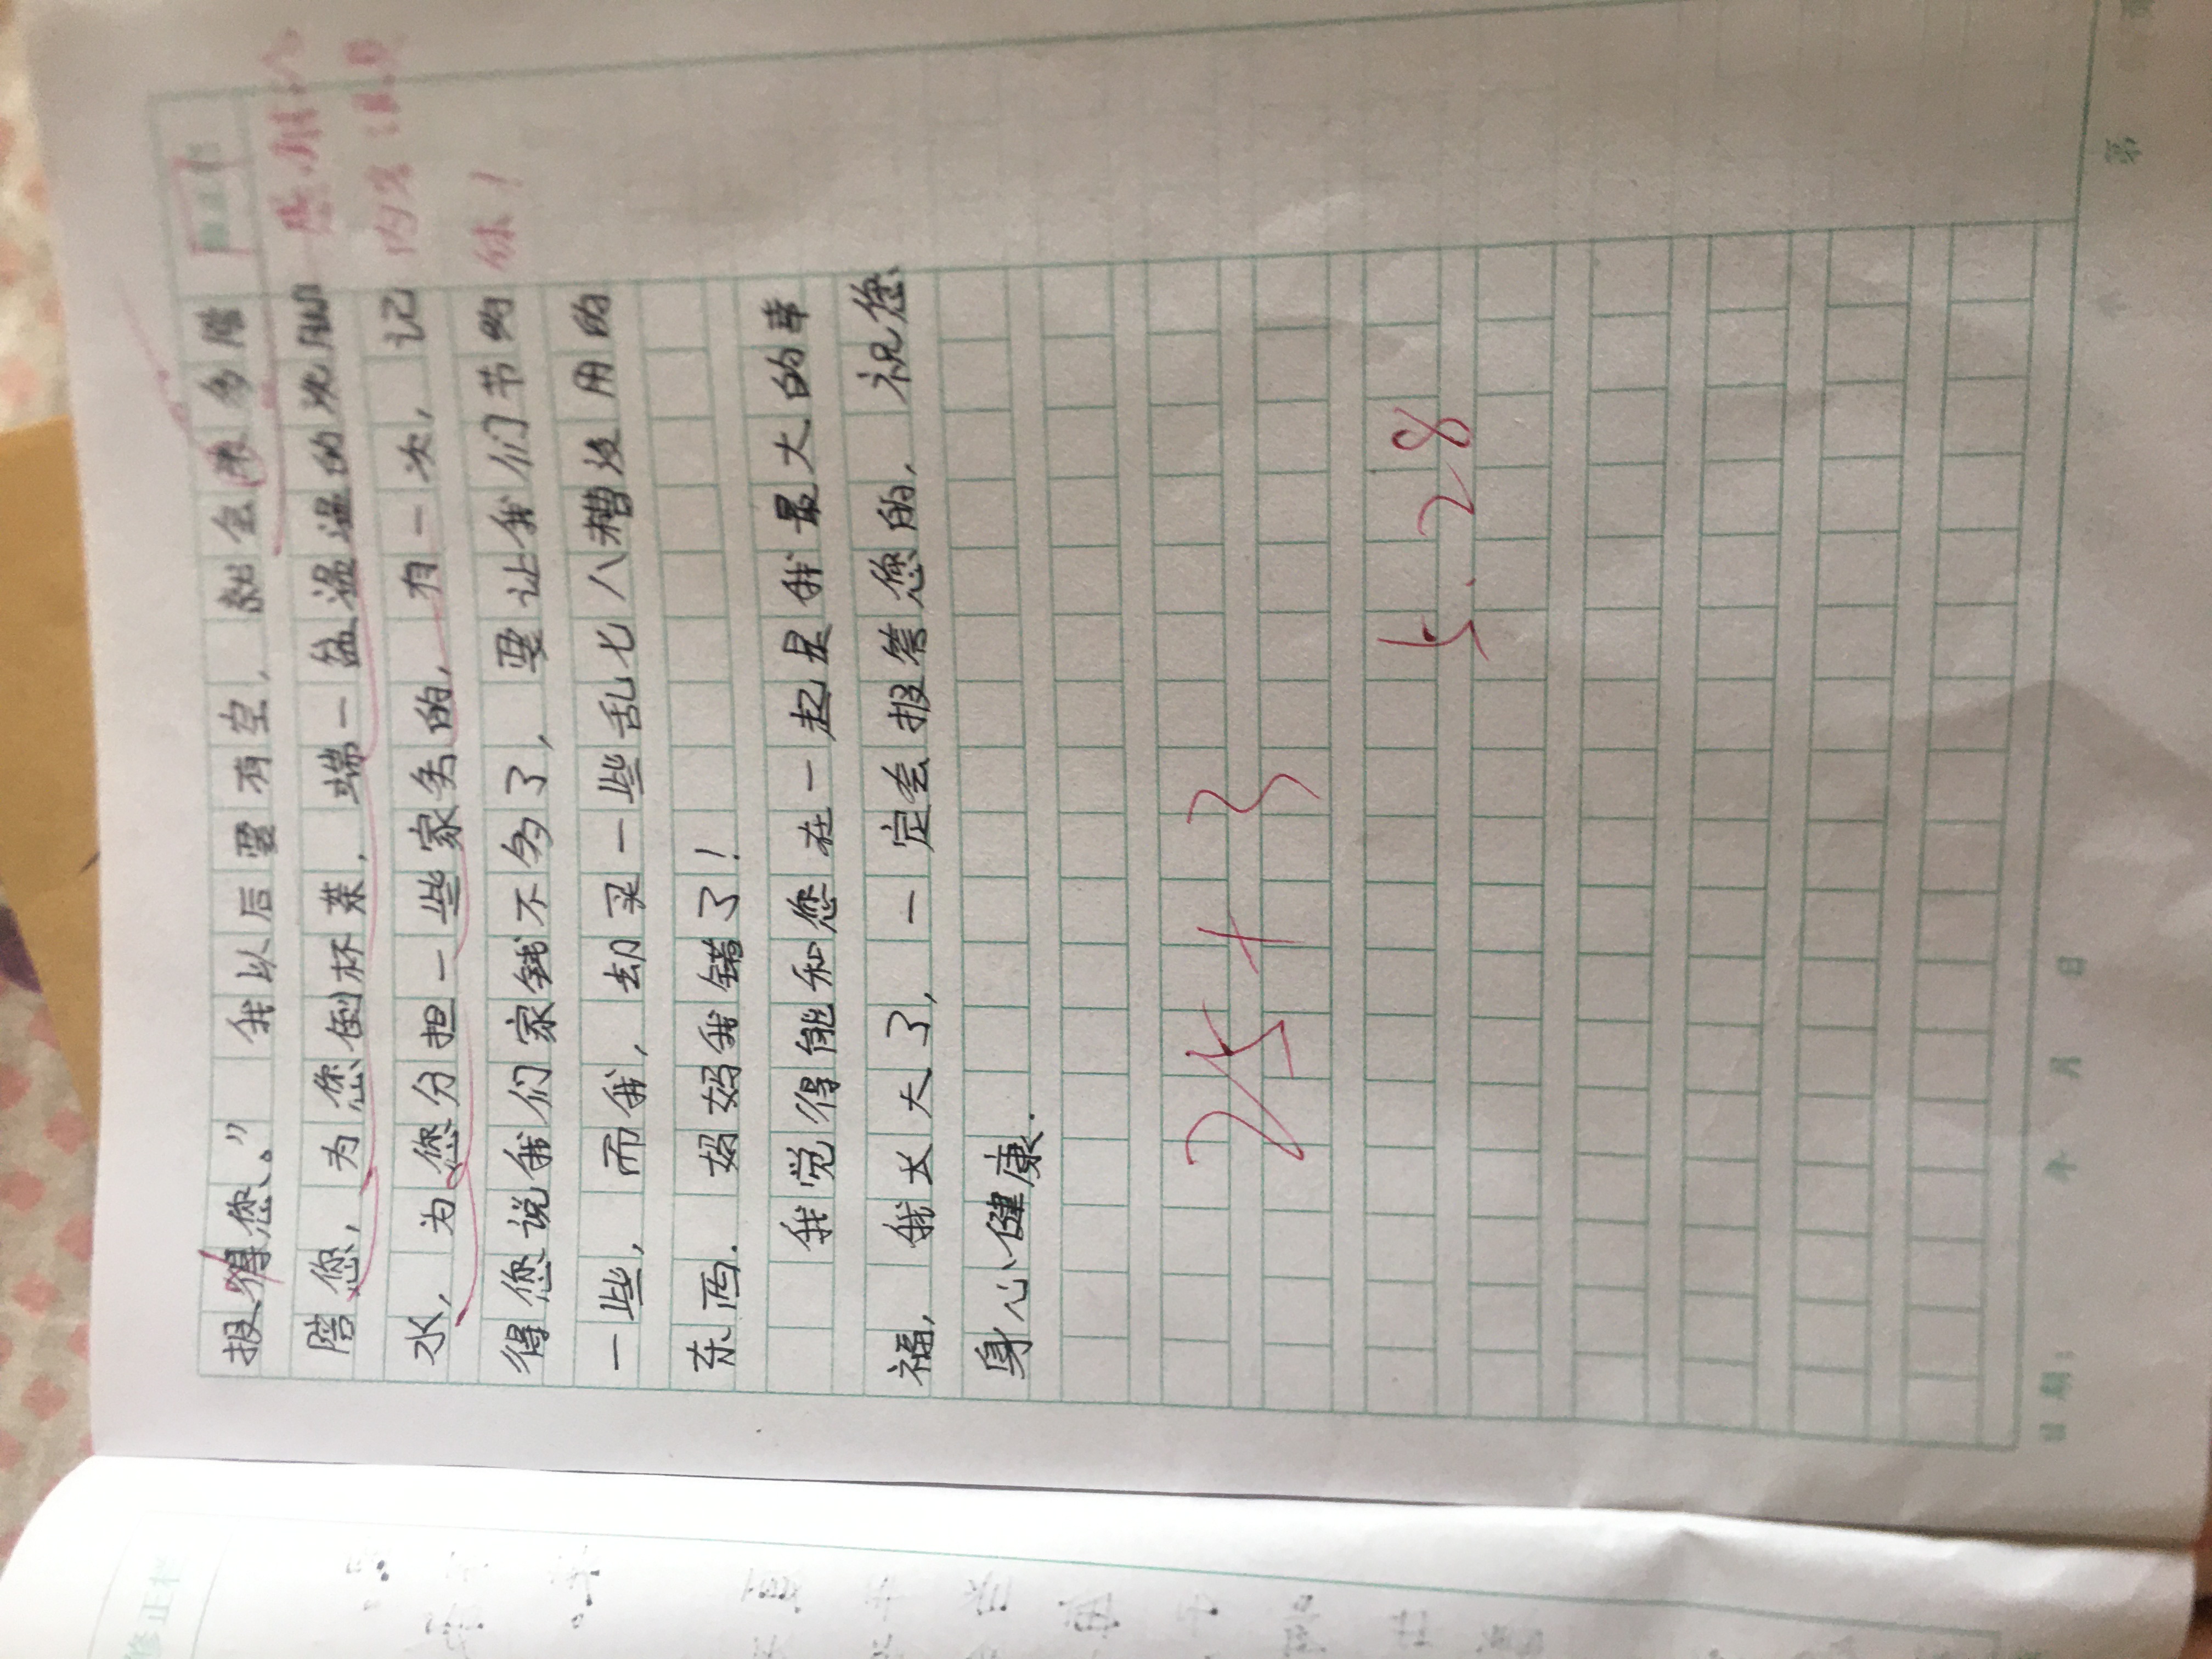 报得您。”我以后要有空,就会来多陪
陪您,为您倒杯茶,端一盆温温的洗脚
水,为您分担一些家务的,有一次,记
得您说我们家钱不多了,要让我们节约
一些,而我,却买一些乱七八糟没用的
东西.妈妈我错了!
我觉得能和您在一起是我最大的幸
福,我长大了,一定会报答您的,祝您
身心健康.
25+3
5.28
你!
日期: 年 月 日
第
修正栏